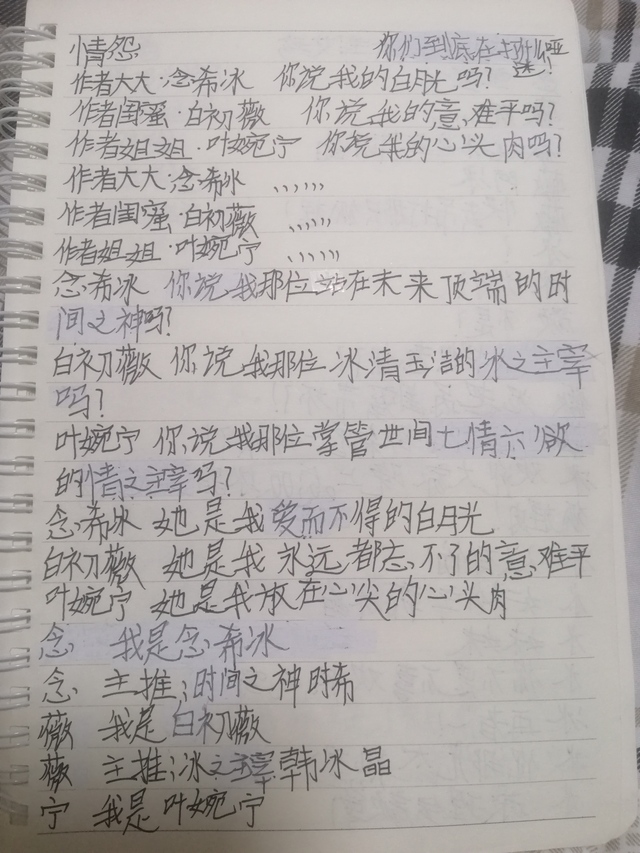 情怨 你们到底在找哑
谜?
作者大大·念希冰 你说我的白月光吗?
作者闺蜜·白初薇 你说我的意难平吗?
作者姐姐·叶婉宁 你说我的心头肉吗?
作者大大·念希冰 、、、、、、
作者闺蜜·白初薇 、、、、、、
作者姐姐·叶婉宁 、、、、、、
念希冰 你说我那位站在未来顶端的时
间之神吗?
白初薇 你说我那位冰清玉洁的冰之主宰
吗?
叶婉宁 你说我那位掌管世间七情六欲
的情之主宰吗?
念希冰 她是我爱而不得的白月光
白初薇 她是我永远都忘不了的意难平
叶婉宁 她是我放在心尖的心头肉
念 我是念希冰
念 主推:时间之神时希
薇 我是白初薇
薇 主推:冰之主宰韩冰晶
宁 我是叶婉宁